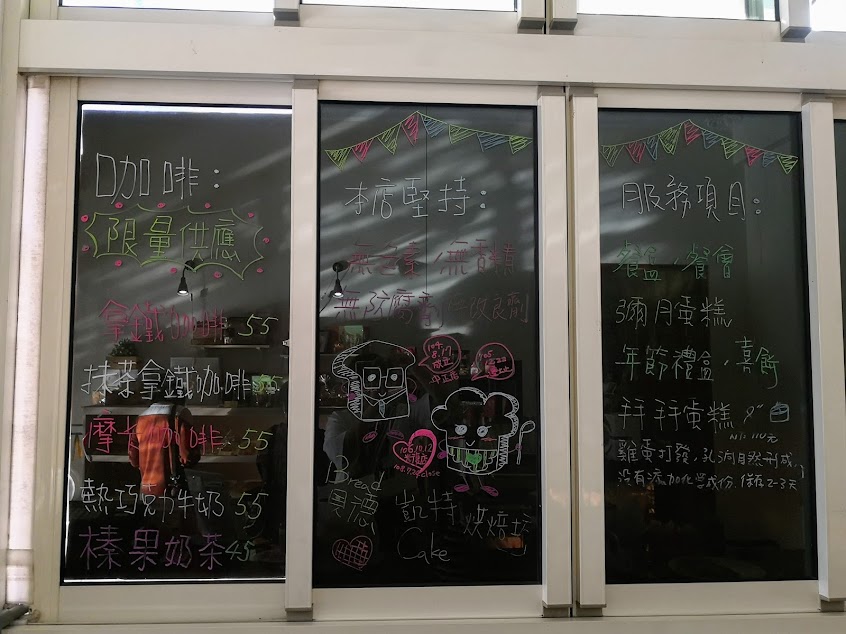 咖啡：
限量供應
拿鐵咖啡 55
抹茶拿鐵咖啡
摩卡咖啡 55
熱巧克力牛奶 55
榛果奶茶 45
本店堅持：
無色素/無香精
無防腐劑/無改良劑
104.
8.17
成立
中正店
105
106.10.12
Bread
貝德
凱特
Cake
烘焙坊
服務項目：
餐盒/餐會
彌月蛋糕
年節禮盒/喜餅
手手蛋糕
110元
雞蛋打發，孔洞自然形成，
沒有添加化學成份，保存2-3天